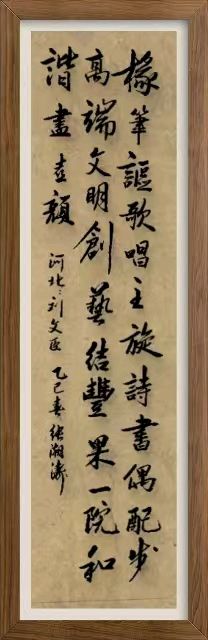 椽筆謳歌唱主旋詩書偶配步
高端文明創藝結豐果一院和
諧盡喜顏
河北刘文臣 乙巳春张湘涛